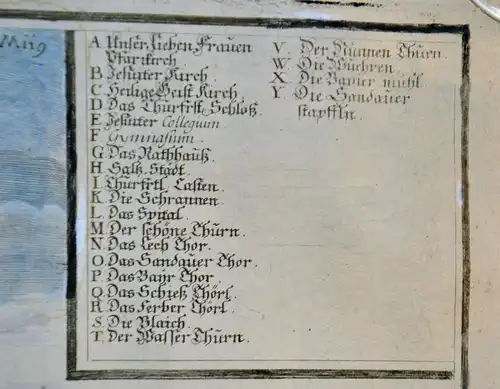 Müg
A Unser Lieben Frauen
Pfarrkirch
B Jesuiter Kirch
C Heilige Geist Kirch
D Das Churfrstl. Schloß
E Jesuiter Collegium
F Gymnasium
G. Das Rathhauß
H Saltz Stadl
I. Churfrtl. Casten.
K. Die Schrannen
L. Das Spital
M. Der schöne Thurn.
N. Das Lech Thor.
O. Das Sandauer Thor.
P. Das Bayr Thor.
Q. Das Schieß Thörl.
R. Das Ferber Thörl.
S. Die Blaich.
T. Der Wasser Thurn.
V. Der Nunnen Thurn.
W. Die Wuehren.
X Die Papier mühl
Y. Die Sandauer
stapffln.